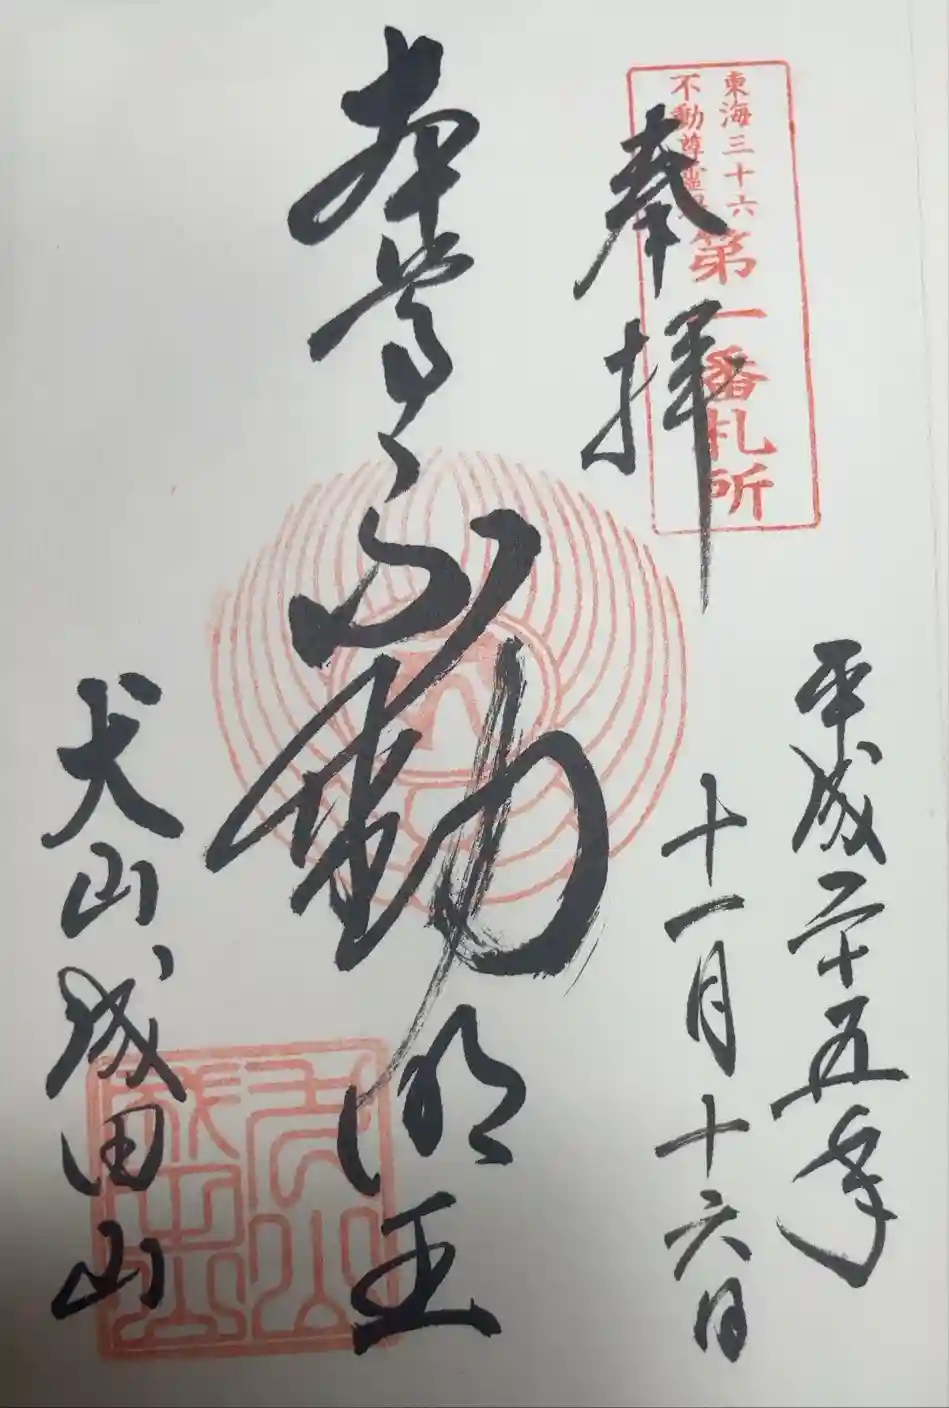 奉拝
東海三十六
不動尊霊場
第一番札所
平成二十五年
十一月十六日
本尊
不動明王
犬山成田山